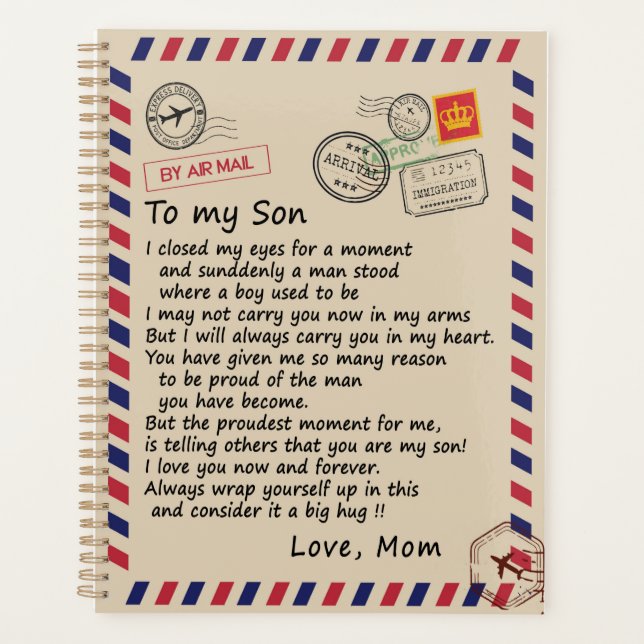 EXPRESS DELIVERY
POST OFFICE DEPARTMENT
AIR MAIL
BY AIR MAIL
ARRIVAL
APPROVE
12345
IMMIGRATION
To my Son
I closed my eyes for a moment
and sunddenly a man stood
where a boy used to be
I may not carry you now in my arms
But I will always carry you in my heart.
You have given me so many reason
to be proud of the man
you have become.
But the proudest moment for me,
is telling others that you are my son!
I love you now and forever.
Always wrap yourself up in this
and consider it a big hug !!
Love, Mom